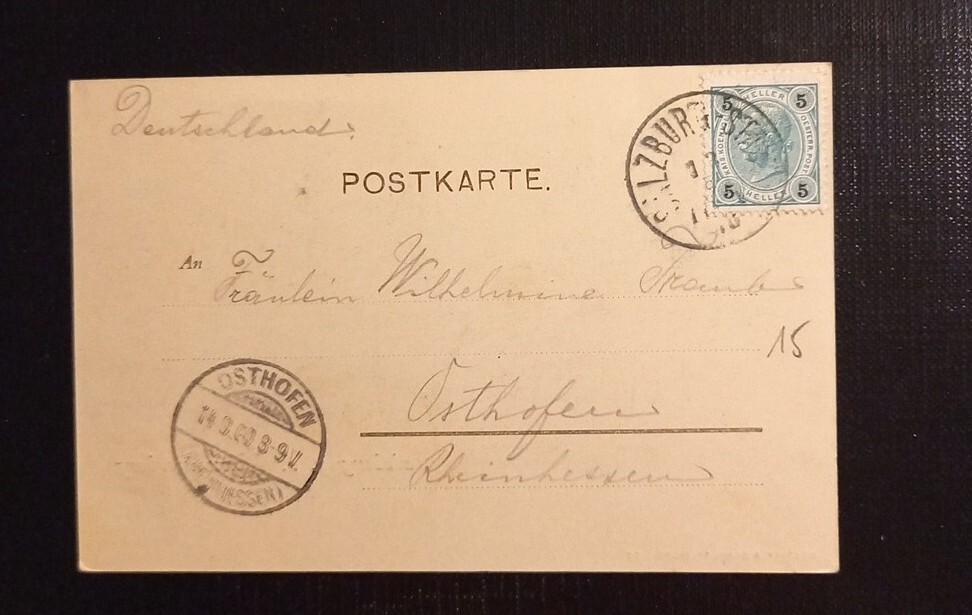 Deutschland.
POSTKARTE.
SALZBURG STADT
5 HELLER 5
KAIS. KOENIGL. OESTERR. POST
5 HELLER 5
An Fräulein Wilhelmine Traub
15
OSTHOFEN
14 9.00 8-9 V.
(RHEINHESSEN)
Osthofen
Rheinhessen